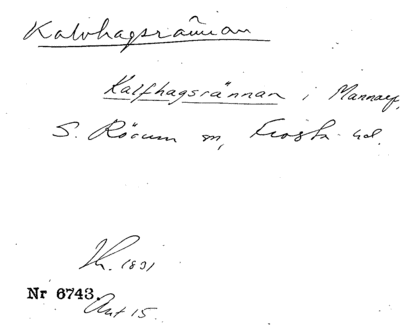 Kalvhagsrännan
Kalfhagsrännan i Mannarp,
S. Rörum sn, Frosta hd.
1891
Nr 6743.
Ant 15.